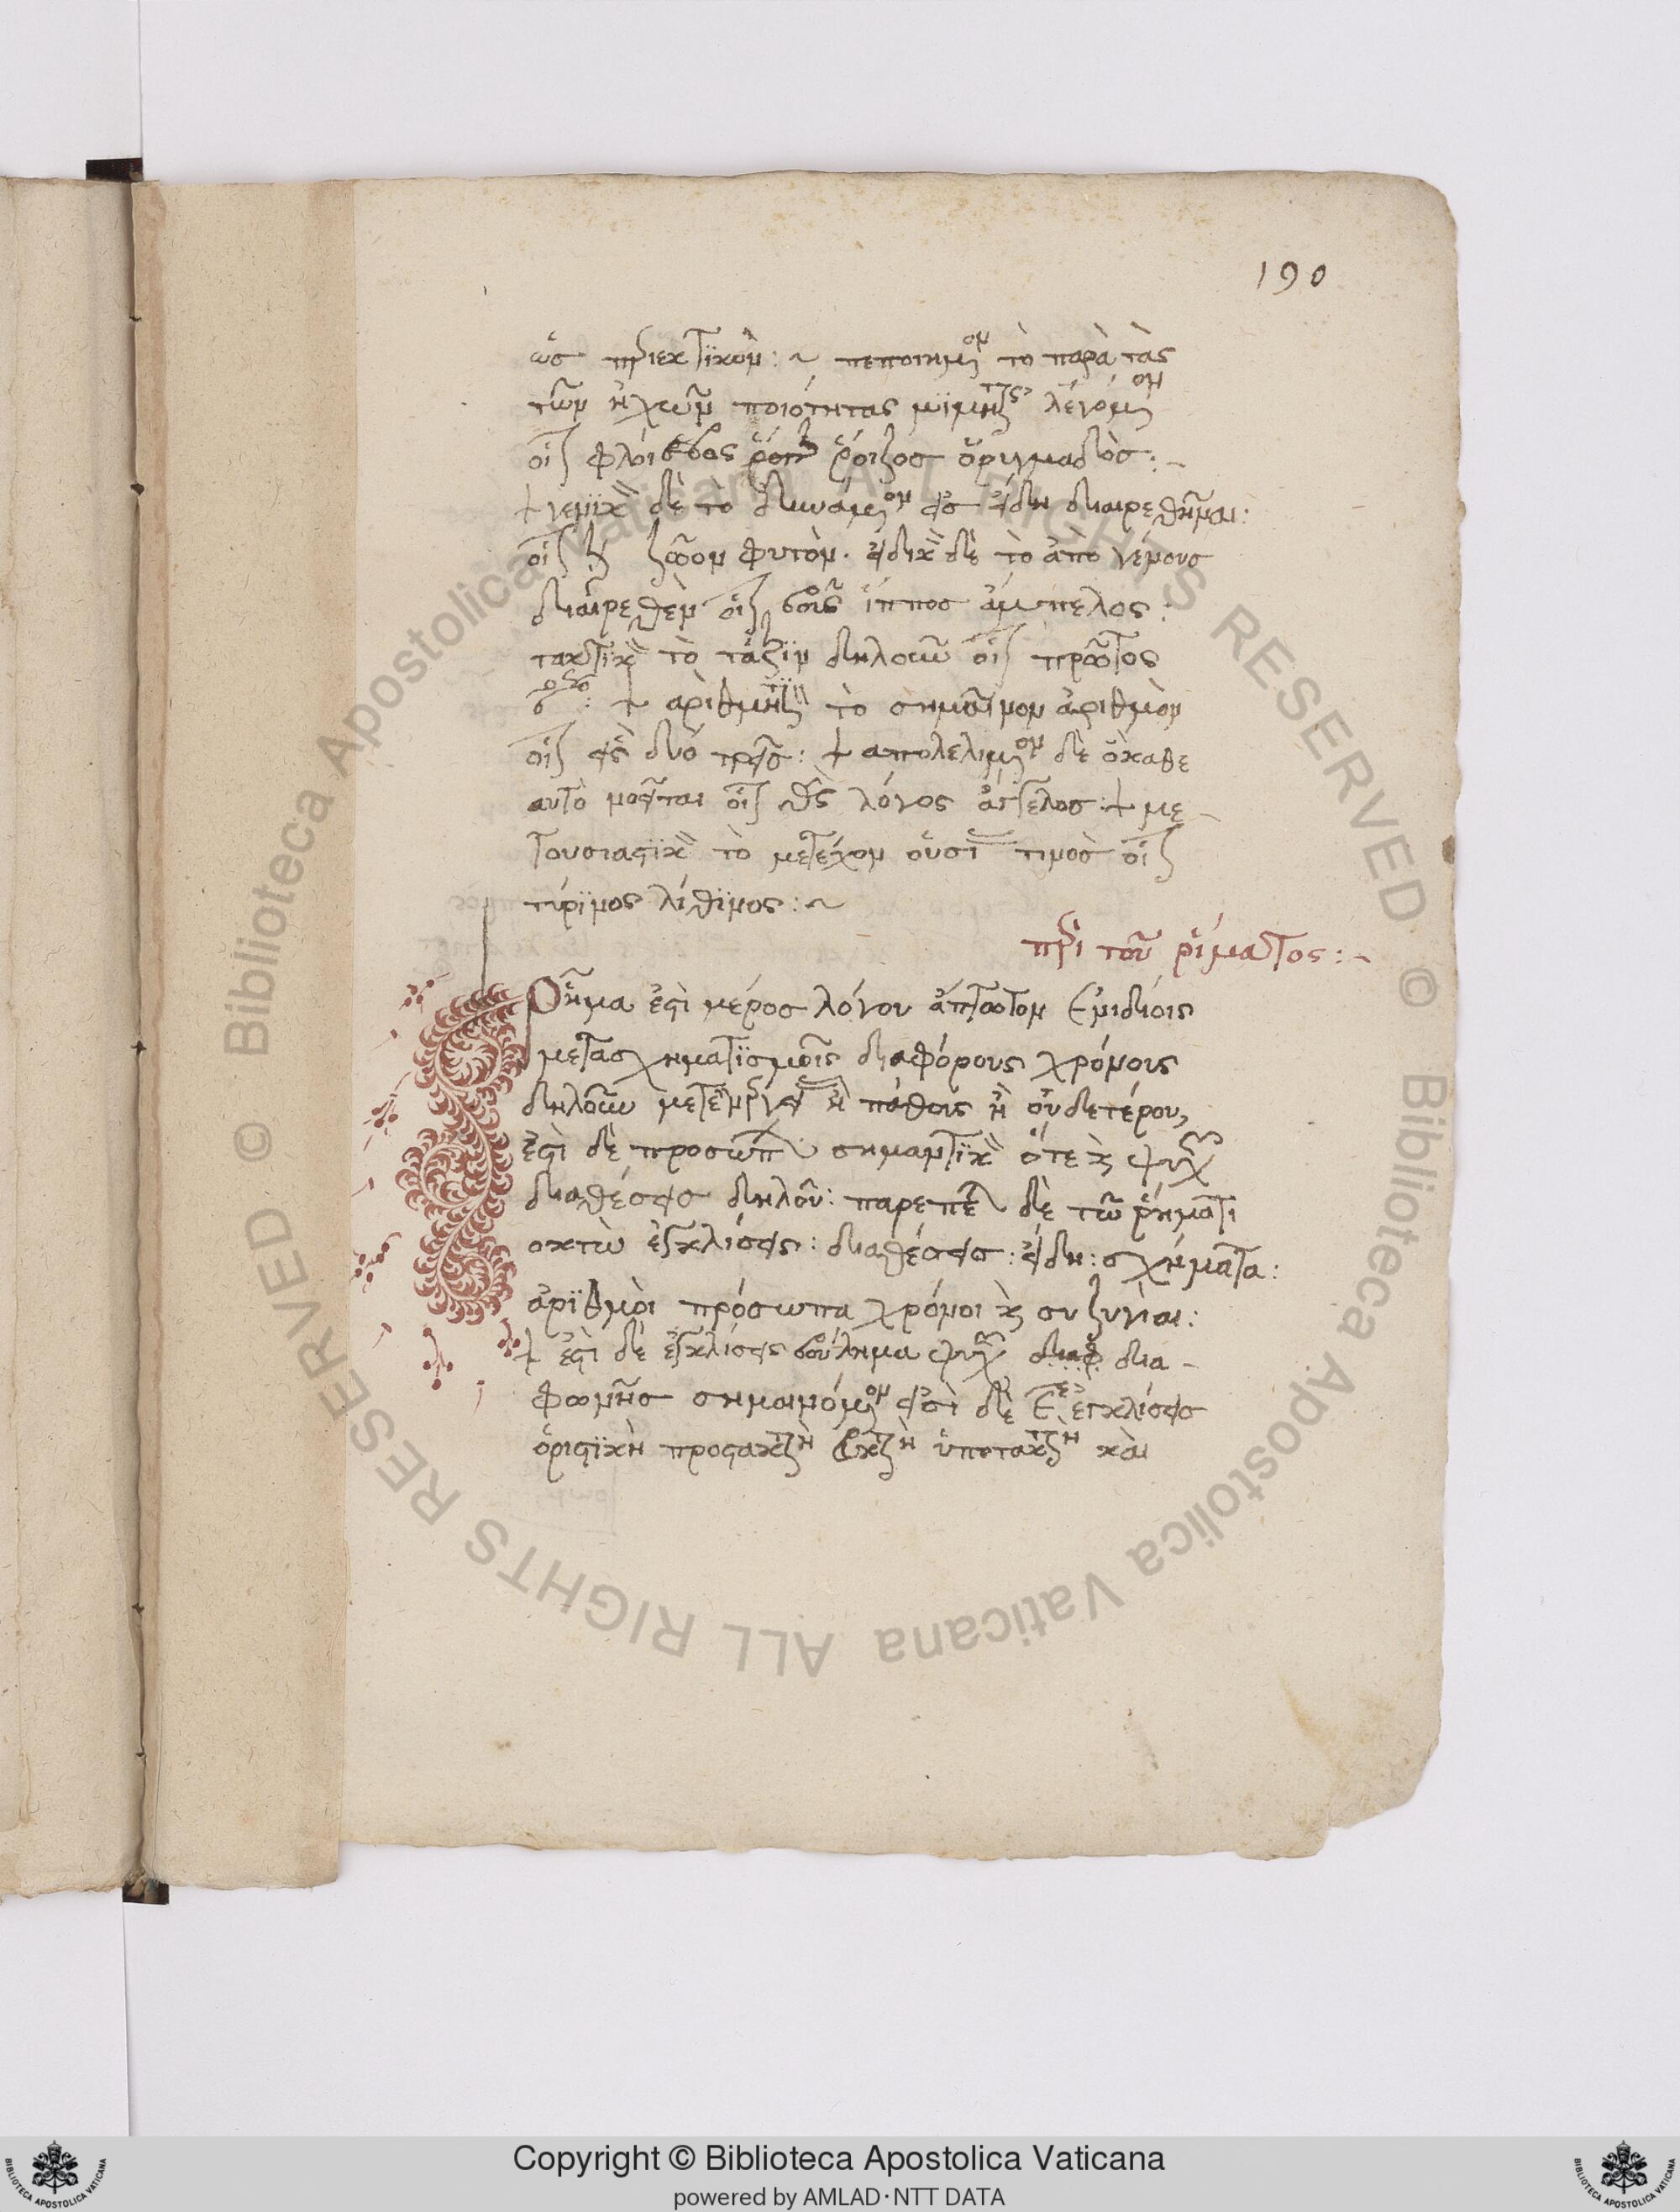 190
ὡσ περιεκτϊκὸν : ~ πεποιημένον τὸ παρὰ τὰς
τῶν ἠχῶν ποιότητας μϊμητικῶς λεγόμενον
οἷον φλοίσβος ῥοῖζοσ ὀρυμαδὸσ : ~
+ γενϊκὸν δὲ τὸ δυνάμενον εἰσ εἴδη διαιρεθῆναι :
οἷον ζῶον φυτὸν. εἰδικὸν δὲ τὸ ἀπὸ γένουσ
διαιρεθὲν οἷον βοῦς ἵπποσ ἄμπελος :
τακτϊκὸν τὸ τάξϊν δηλοῦν οἷον πρῶτος
δεύτερος : + ἀριθμητϊκὸν τὸ σημαῖνον ἀριθμὸν
οἷον εἷς δυὸ τρεῖσ : + απολελυμένον δὲ ὃ καθε
αυτὸ νοεῖται οἷον θεὸς λόγος ἄγγελοσ : + με -
τουσιαστϊκὸν τὸ μετέχον οὐσίας τινοσ οἷον
πύρϊνος λίθϊνος : ~
περὶ τοῦ ῥίματος : ~
Ρῆμα ἐστὶ μέρος λόγου ἄπτωτον ἐν ιδίοις
μετασχηματϊσμοῖς διαφόρους χρόνους
δηλοῦν μετ ἐνεργείας ἢ πάθοις ἢ οὐδετέρου,
ἐστὶ δὲ προσώπων σημαντϊκὸν ὅτε καὶ ψυχῆς
διαθέσεισ δηλοῦν : παρέπεται δὲ τῶ ῥήματι
οκτὼ ἐγκλίσεις : διαθέσεισ : εἴδη : σχήματα :
ἀρϊθμοὶ πρόσωπα χρόνοι καὶ συζυγίαι :
+ ἐστὶ δὲ ἐγκλίσεις βούλημα ψυχῆς διαφ δια -
φωνῆσ σημαινόμενον εἰσὶ δὲ πέντε ἐγκλίσεισ
ὁριστϊκὴ προστακτικὴ εὐκτικὴ ὑποτακτικὴ καὶ
Copyright © Biblioteca Apostolica Vaticana
powered by AMLAD·NTT DATA
© Biblioteca Apostolica Vaticana ALL RIGHTS RESERVED
© Biblioteca Apostolica Vaticana ALL RIGHTS RESERVED